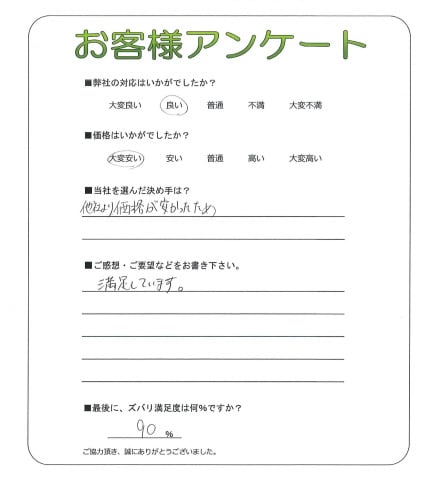 お客様アンケート
■弊社の対応はいかがでしたか?
大変良い 良い 普通 不満 大変不満
■価格はいかがでしたか?
大変安い 安い 普通 高い 大変高い
■当社を選んだ決め手は?
他社より価格が安かったため
■ご感想・ご要望などをお書き下さい。
満足しています。
■最後に、ズバリ満足度は何%ですか?
90 %
ご協力頂き、誠にありがとうございました。